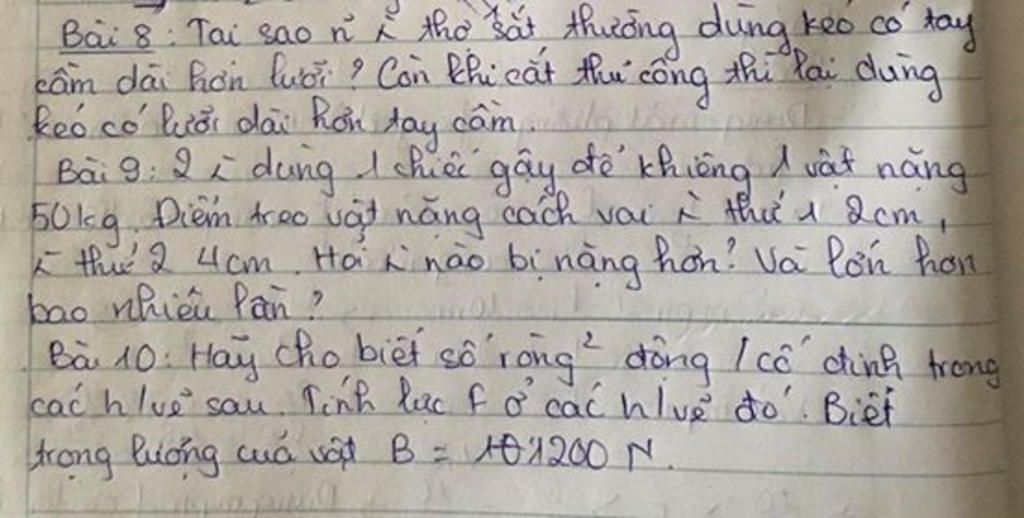 Bài 8: Tại sao n ⅄ thợ sắt thường dùng kéo có tay
cầm dài hơn lưỡi? Còn khi cắt thủ công thì lại dùng
kéo có lưỡi dài hơn tay cầm.
Bài 9: 2 ⅄ dùng 1 chiếc gậy để khiêng 1 vật nặng
50kg. Điểm treo vật nặng cách vai ⅄ thứ 1 2cm,
⅄ thứ 2 4cm. Hỏi ⅄ nào bị nặng hơn? Và lớn hơn
bao nhiêu lần?
Bài 10: Hãy cho biết số ròng² động / cố định trong
các h/vẽ sau. Tính lực F ở các h/vẽ đó. Biết
trọng lượng của vật B = 1200 N.